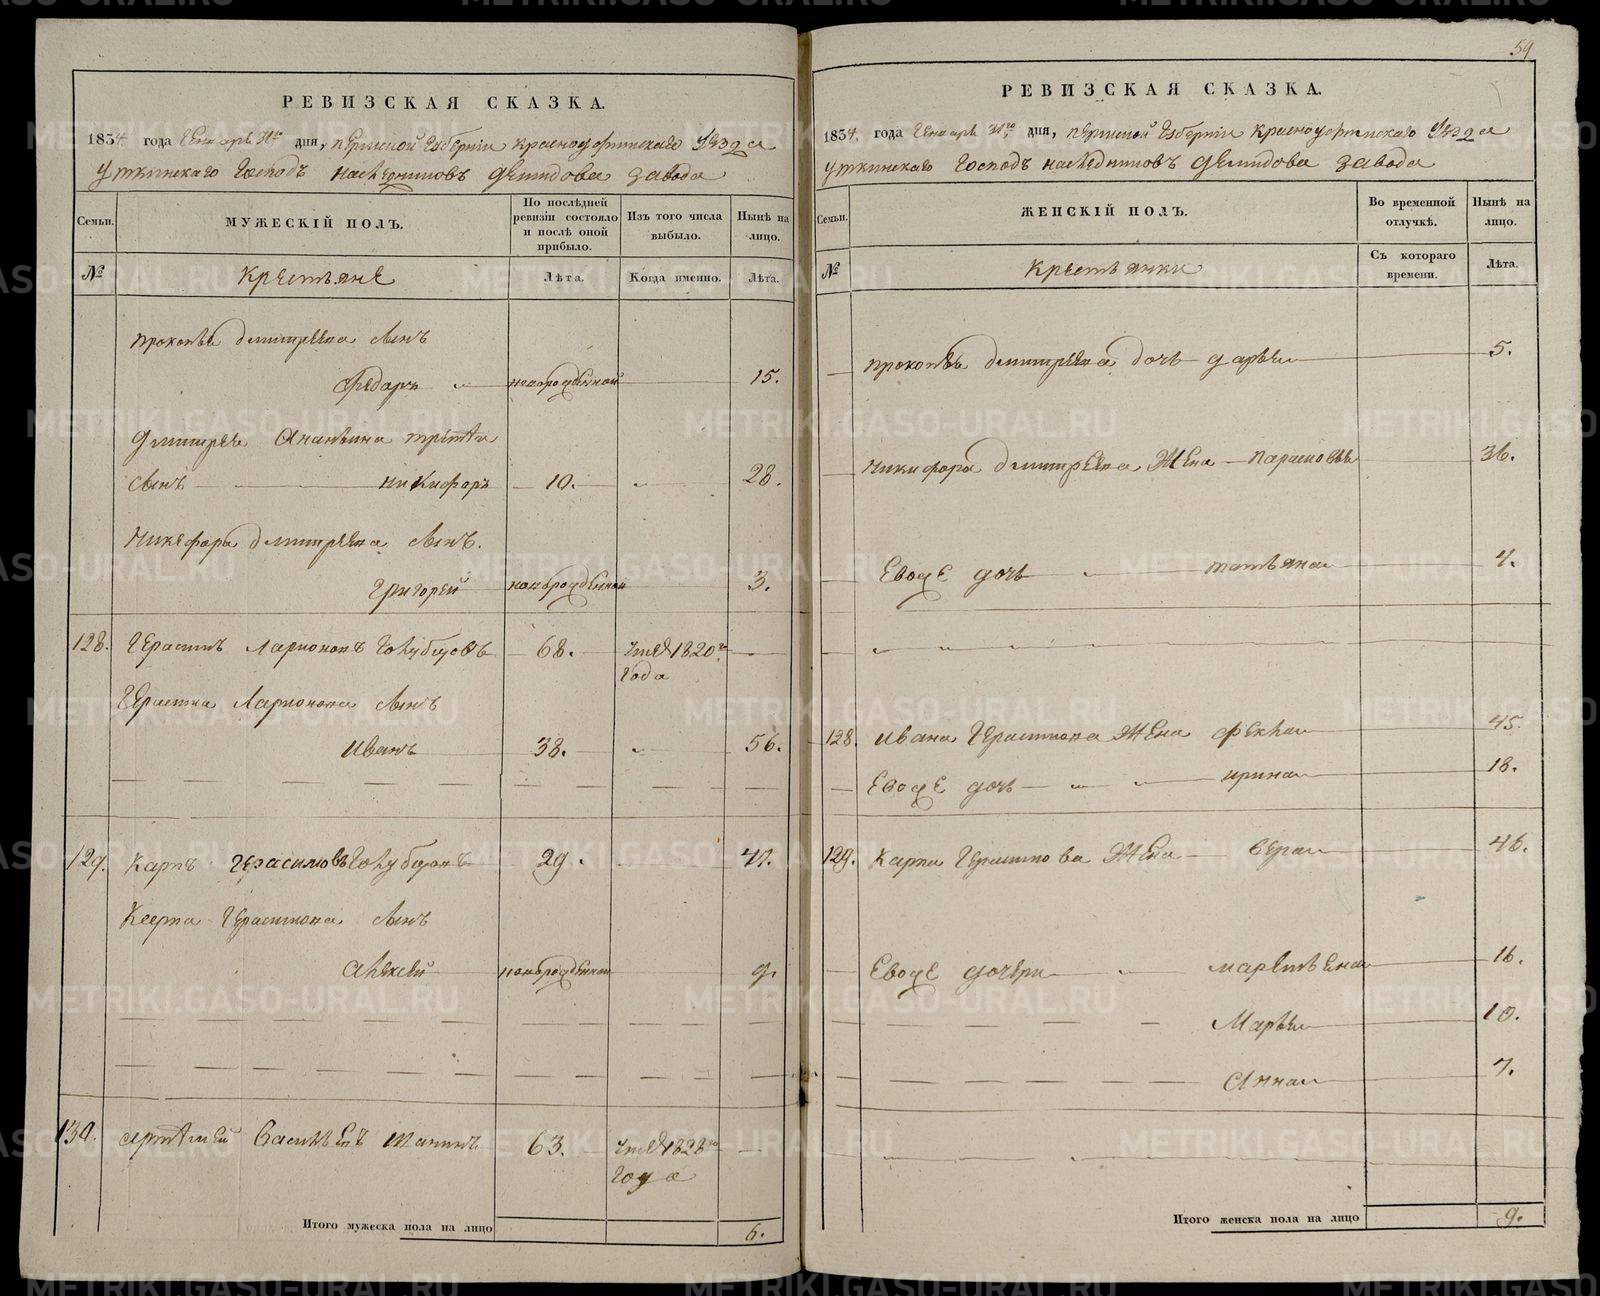 РЕВИЗСКАЯ СКАЗКА.
1834 года Генваря 31го дня, пермской губернии красноуфимского уезда
Уткинскаго Господъ наследниковъ демидова завода
Семьи.
МУЖЕСКІЙ ПОЛЪ.
По послѣдней ревизіи состояло и послѣ оной прибыло.
Изъ того числа выбыло.
Нынѣ на лицо.
№
Крестьяне
Лѣта.
Когда именно.
Лѣта.
прокопья дмитреева сынъ
Федаръ новорожденной 15.
дмитрея Ананьина третей
сынъ никифаръ 10. 28.
Никифора дмитреева сынъ.
Григорей новорожденной 3.
128. Герасимъ Ларионовъ Голубцовъ 68. умеръ 1820го
года
Герасима Ларионова сынъ
Иванъ 38. 56.
129. Карпъ Герасимовъ Голубцовъ 29. 47.
Карпа Герасимова сынъ
Алексей новорожденной 9.
130. артемей Васильевъ шанинъ 63. умеръ 1828го
года
Итого мужеска пола на лицо 6.
59
РЕВИЗСКАЯ СКАЗКА.
1834. года Генваря 31го дня, пермской губерніи красноуфимского уезда
уткинскаго Господъ наследниковъ демидова завода
Семьи.
ЖЕНСКІЙ ПОЛЪ.
Во временной отлучкѣ.
Нынѣ на лицо.
№
Крестьянки
Съ котораго времени.
Лѣта.
прокопья дмитреева дочь дарья 5.
Никифора дмитреева Жена парасковья 36.
Евоже дочь татьяна 4.
128. Ивана Герасимова Жена фекла 45.
Евоже дочь ирина 18.
129. Карпа Герасимова Жена вера 46.
Евоже дочери маремьяна 16.
Марья 10.
Анна 7.
Итого женска пола на лицо 9.
METRIKI.GASO-URAL.RU